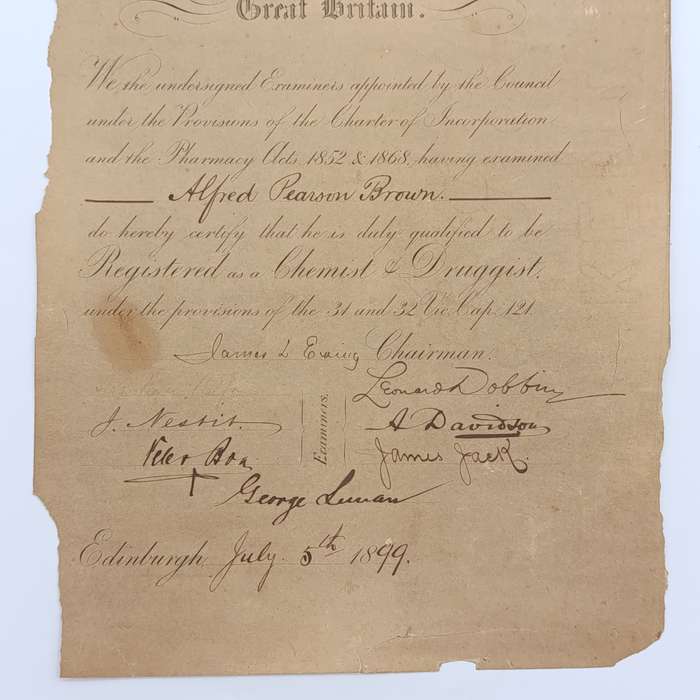 Great Britain.
We the undersigned Examiners appointed by the Council
under the Provisions of the Charter of Incorporation
and the Pharmacy Acts, 1852 & 1868, having examined
Alfred Pearson Brown.
do hereby certify that he is duly qualified to be
Registered as a Chemist & Druggist,
under the provisions of the 31 and 32 Vic. Cap. 121.
James L Ewing Chairman.
Leonard Dobbin
J. Nesbit.
Examiners.
A Davidson
Peter Boa
James Jack.
George Lunan
Edinburgh, July 5th 1899.